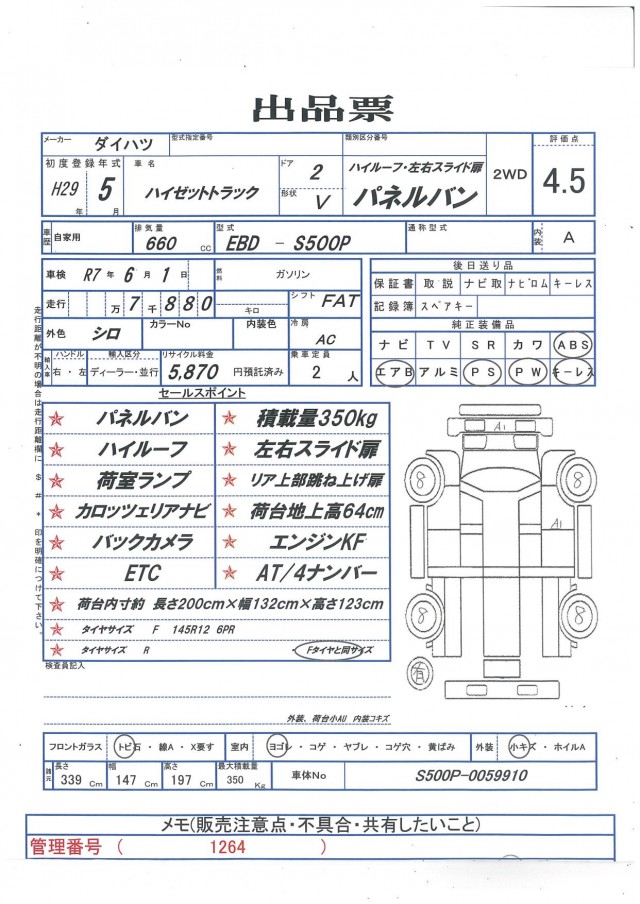 出品票
メーカー ダイハツ 型式指定番号 類別区分番号 評価点
初度登録年式 H29 年 5 月 車名 ハイゼットトラック ドア 2 形状 V ハイルーフ・左右スライド扉 パネルバン 2WD 4.5
車歴 自家用 排気量 660 cc 型式 EBD - S500P 通称型式 内装 A
車検 R7 年 6 月 1 日 燃料 ガソリン
走行 万 7 千 8 8 0 キロ シフト FAT
外色 シロ カラーNo 内装色 冷房 AC
輸入車 ハンドル 右・左 輸入区分 ディーラー・並行 リサイクル料金 5,870 円預託済み 乗車定員 2 人
後日送り品
保証書 取説 ナビ取 ナビロム キーレス
記録簿 スペアキー
純正装備品
ナビ TV SR カワ ABS
エアB アルミ PS PW キーレス
走行距離が不明の場合は走行距離欄に $ # * 印を明確につけて下さい。
セールスポイント
パネルバン 積載量350kg
ハイルーフ 左右スライド扉
荷室ランプ リア上部跳ね上げ扉
カロッツェリアナビ 荷台地上高64cm
バックカメラ エンジンKF
ETC AT/4ナンバー
荷台内寸約 長さ200cm×幅132cm×高さ123cm
タイヤサイズ F 145R12 6PR
タイヤサイズ R ・Fタイヤと同サイズ
A1
8 8
A1
8 8
有
検査員記入
外装、荷台小AU 内装コキズ
フロントガラス トビ石・線A・X要す 室内 ヨゴレ・コゲ・ヤブレ・コゲ穴・黄ばみ 外装 小キズ・ホイルA
諸元 長さ 339 Cm 幅 147 Cm 高さ 197 Cm 最大積載量 350 Kg 車体No S500P-0059910
メモ(販売注意点・不具合・共有したいこと)
管理番号 ( 1264 )